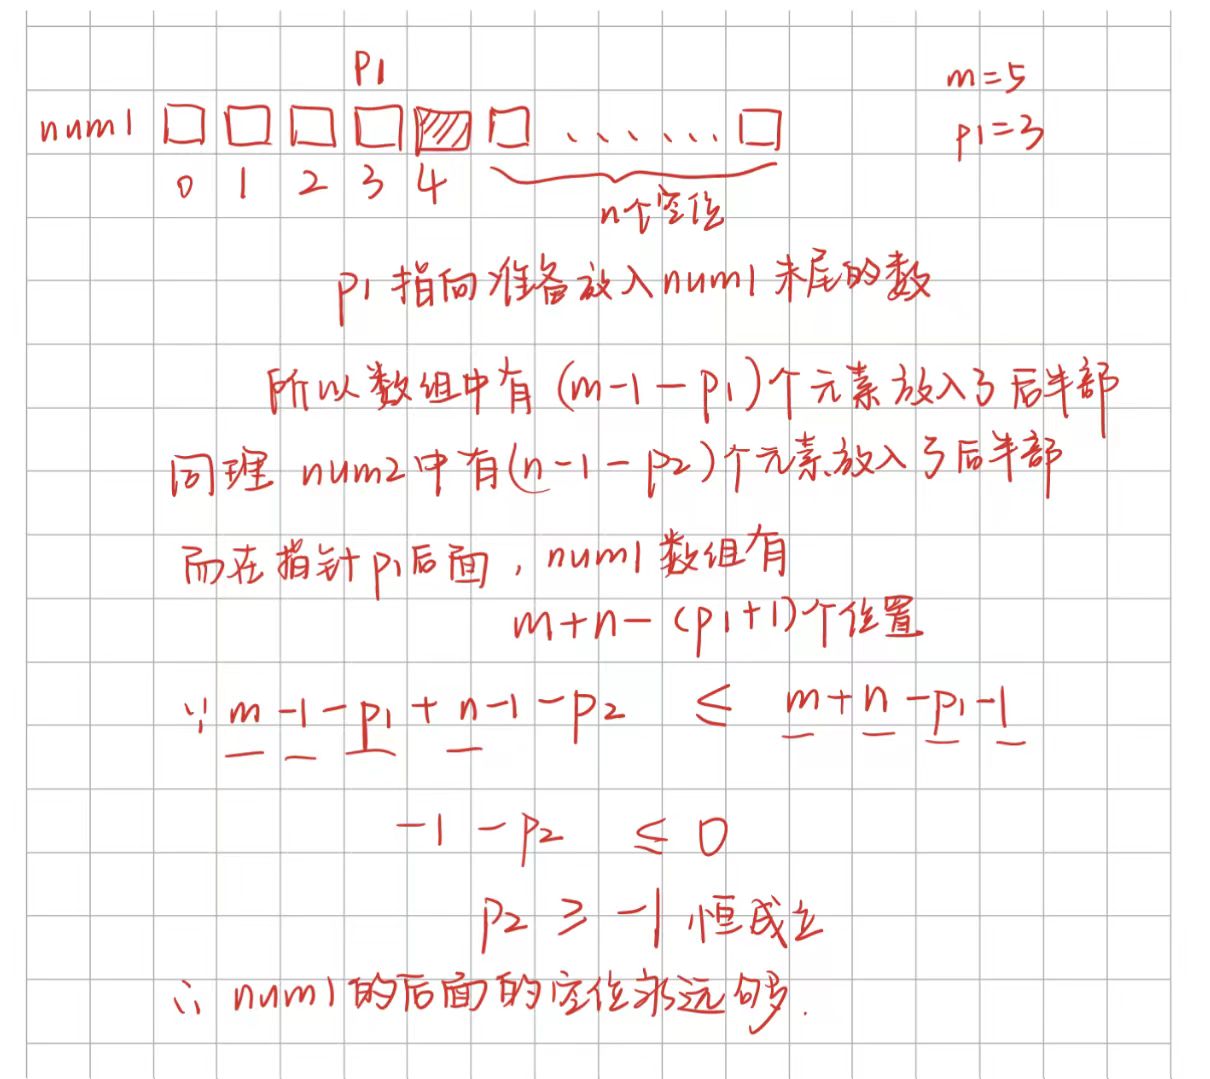 p1
m=5
num1 ......
p1=3
0 1 2 3 4
n个空位
p1 指向准备放入num1末尾的数
所以数组中有 (m-1-p1)个元素放入了后半部
同理 num2中有(n-1-p2)个元素放入了后半部
而在指针p1后面，num1数组有
m+n-(p1+1)个位置
∵ m-1-p1+n-1-p2 ≤ m+n-p1-1
-1-p2 ≤ 0
p2 ≥ -1 恒成立
∴ num1的后面的空位永远够.